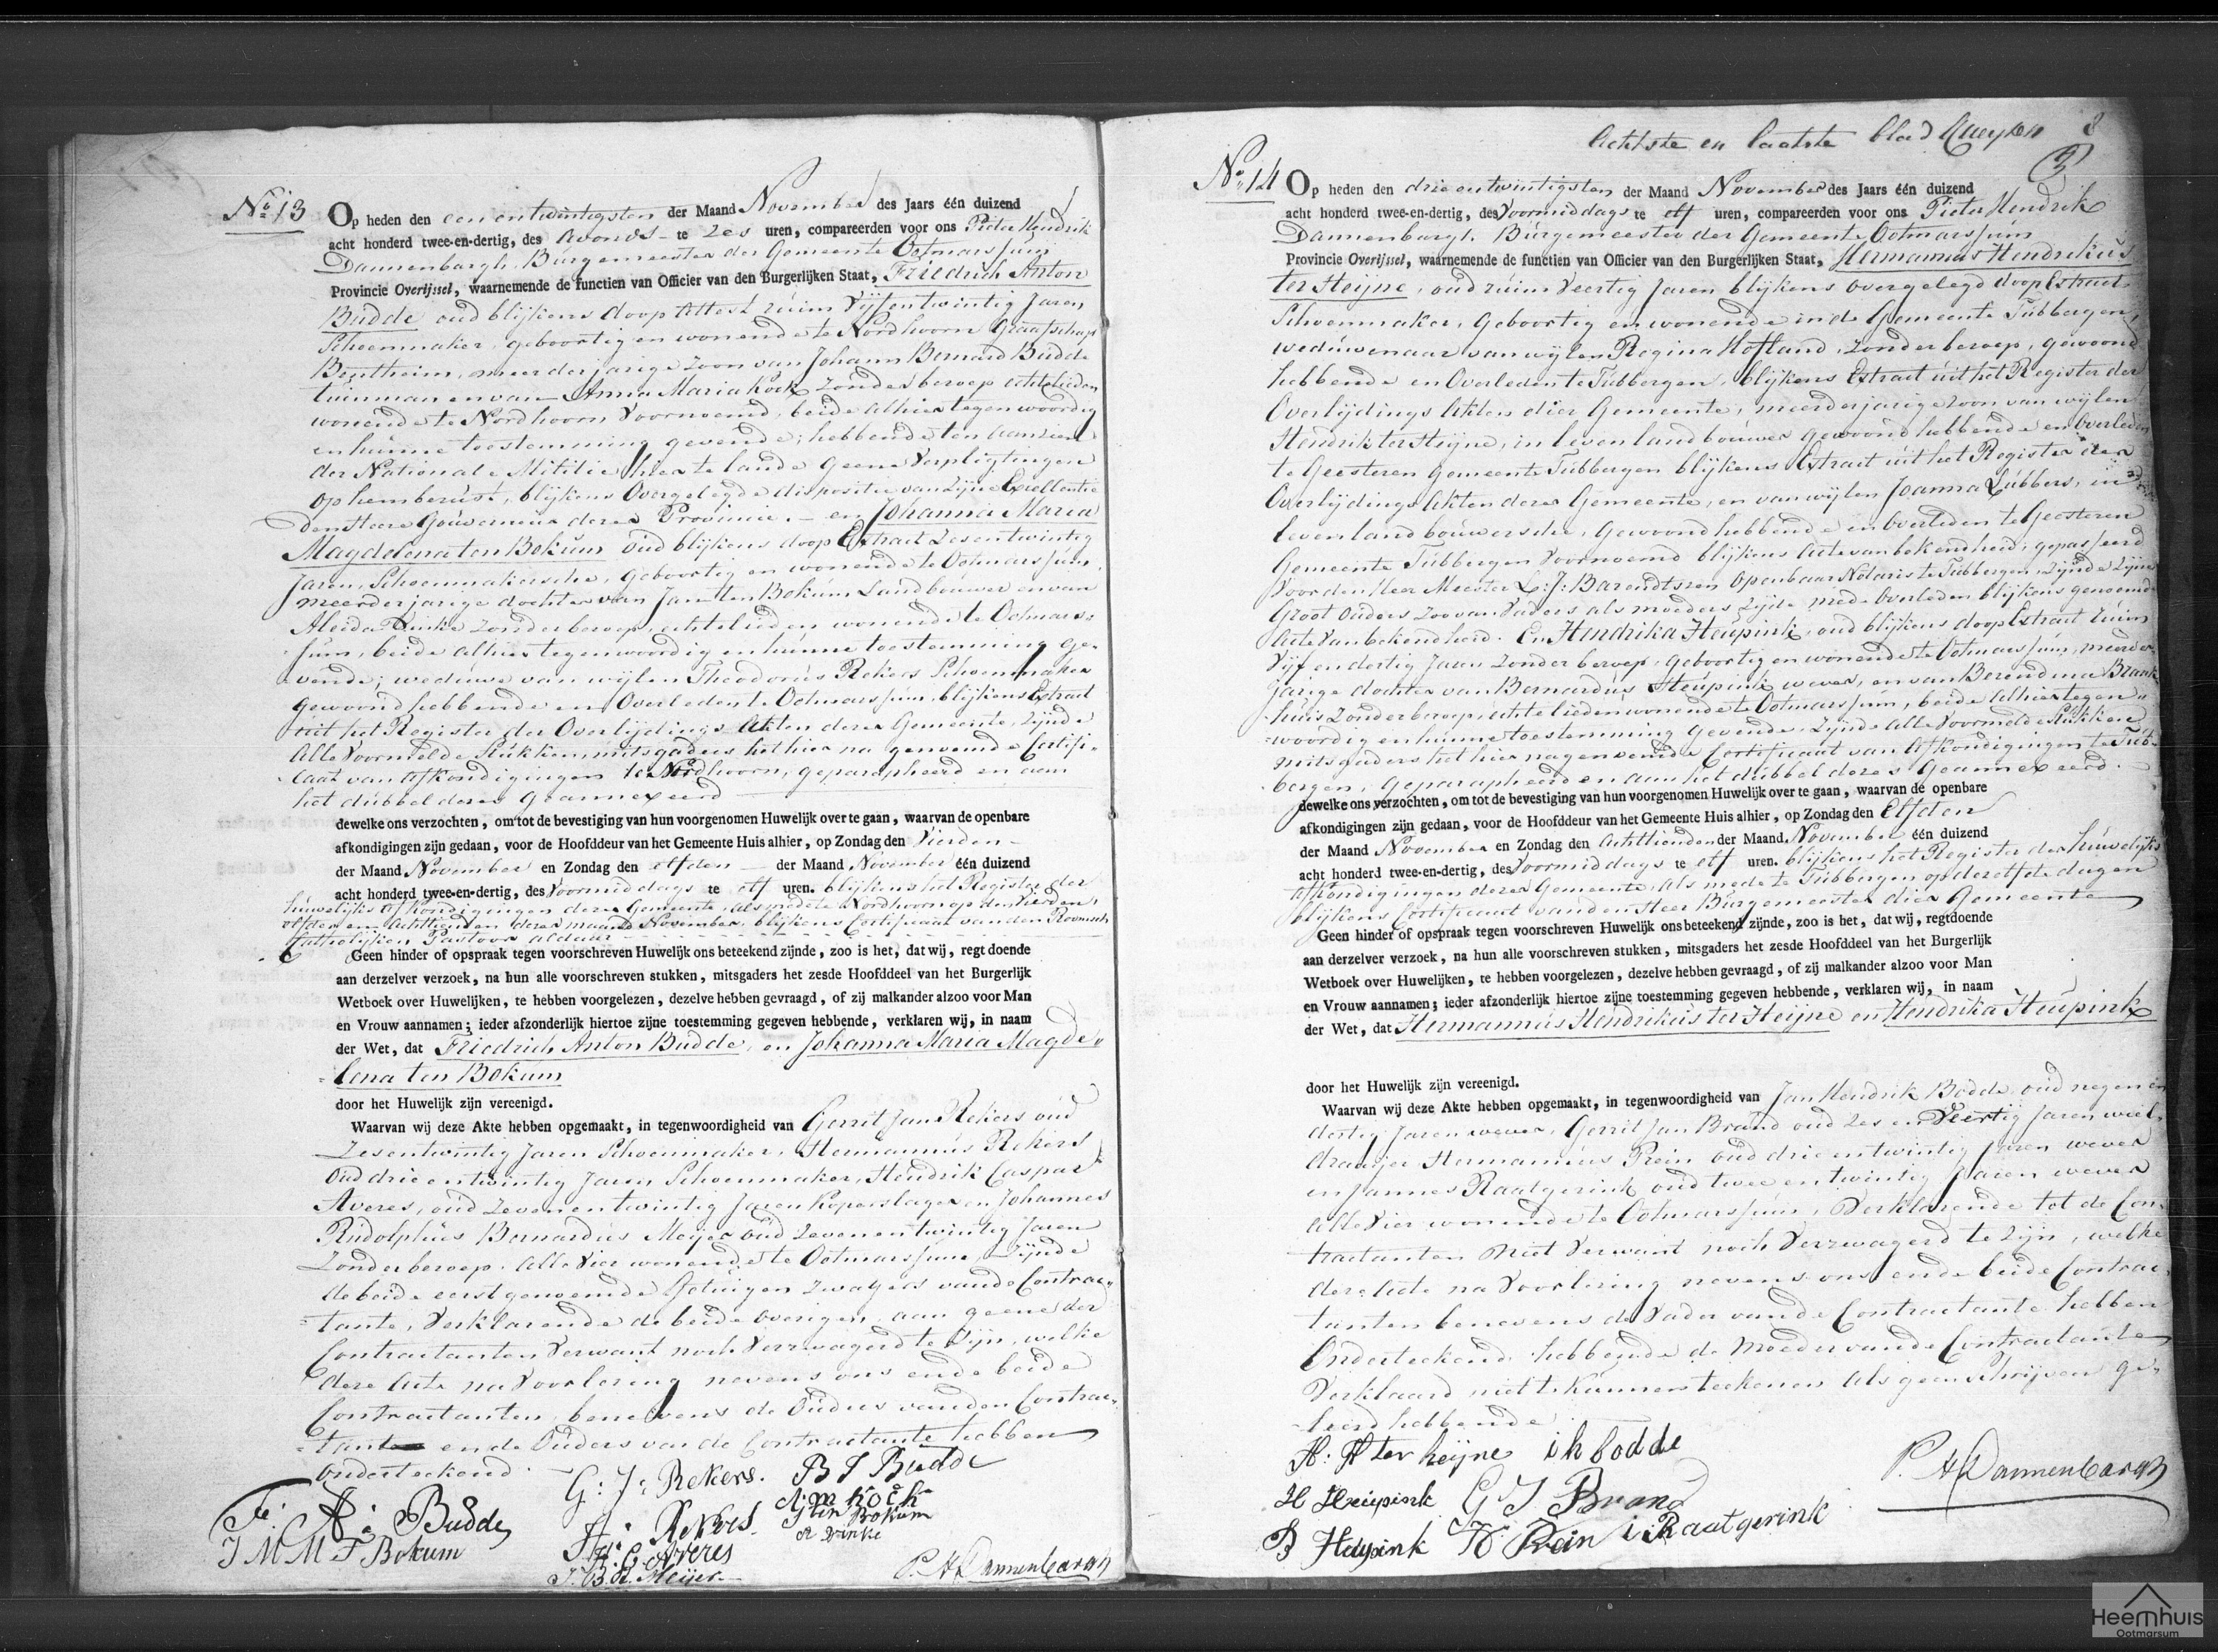 No. 13
Op heden den een entwintigsten der Maand November des Jaars één duizend
acht honderd twee-en-dertig, des Avonds te zes uren, compareerden voor ons Pieter Hendrik
Dannenbargh, Burgemeester der Gemeente Ootmarssum
Provincie Overijssel, waarnemende de functien van Officier van den Burgerlijken Staat, Friedrich Anton
Budde oud blijkens doop Attest ruim Vijfentwintig Jaren
Schoenmaker, geboortig en wonende te Nordhoorn Graafschap
Bentheim, meerderjarige zoon van Johann Bernard Budde
tuinman en van Anna Maria Kock zonder beroep echtelieden
wonende te Nordhoorn Voornoemd, beide alhier tegenwoordig
en hunne toestemming gevende; hebbende ten aanzien
der Nationale Militie hier te lande geene Verpligtingen
op hem berust, blijkens Overgelegde dispositie van zijne Excellentie
den Heere Gouverneur dezer Provincie. – en Johanna Maria
Magdelena ten Bokum oud blijkens doop Extract zesentwintig
Jaren, Schoenmakersche, geboortig en wonende te Ootmarssum,
meerderjarige dochter van Jan ten Bokum Landbouwer en van
Aleida Vinke zonder beroep, echtelieden wonende te Ootmars=
sum, beide alhier tegenwoordig en hunne toestemming ge=
vende; weduwe van wijlen Theodorus Rekers Schoenmaker
gewoond hebbende en Overleden te Ootmarssum, blijkens Extract
uit het Register der Overlijdings Akten dezer Gemeente, zijnde
Alle Voormelde Stukken, mitsgaders het hier na genoemde Certifi=
caat van Afkondigingen te Nordhoorn, geparapheerd en aan
het dubbel dezer geannexeerd
dewelke ons verzochten, om tot de bevestiging van hun voorgenomen Huwelijk over te gaan, waarvan de openbare
afkondigingen zijn gedaan, voor de Hoofddeur van het Gemeente Huis alhier, op Zondag den Vierden
der Maand November en Zondag den elfden der Maand November één duizend
acht honderd twee-en-dertig, des Voormiddags te elf uren. blijkens het Register der
huwelijks Afkondigingen dezer Gemeente, als mede te Nordhoorn op den Vierden,
elfden en Achttienden dezer maand November, blijkens Certificaat van den Roomsch
Catholijken Pastoor aldaar
Geen hinder of opspraak tegen voorschreven Huwelijk ons beteekend zijnde, zoo is het, dat wij, regt doende
aan derzelver verzoek, na hun alle voorschreven stukken, mitsgaders het zesde Hoofddeel van het Burgerlijk
Wetboek over Huwelijken, te hebben voorgelezen, dezelve hebben gevraagd, of zij malkander alzoo voor Man
en Vrouw aannamen; ieder afzonderlijk hiertoe zijne toestemming gegeven hebbende, verklaren wij, in naam
der Wet, dat Friedrich Anton Budde, en Johanna Maria Magde=
=lena ten Bokum
door het Huwelijk zijn vereenigd.
Waarvan wij deze Akte hebben opgemaakt, in tegenwoordigheid van Gerrit Jan Rekers oud
Zesentwintig Jaren Schoenmaker, Hermannus Rekers
Oud drieentwintig Jaren Schoenmaker, Hendrik Caspar
Averes, oud Zevenentwintig Jaren Koperslager en Johannes
Rudolphus Bernardus Meijer oud Zevenentwintig Jaren
Zonder beroep. Alle Vier wonende te Ootmarssum, Zijnde
de beide eerstgenoemde Getuigen zwagers van de Contrac=
=tante, Verklarende de beide overigen, aan geene der
Contractanten Verwant noch Verzwagerd te Zijn, welke
deze Acte na Voorlezing nevens ons ende beide
Contractanten, benevens de Ouders van den Contrac=
=tant en de Ouders van de Contractante hebben
Onderteekend.
F: A: Budde
J M M T Bokum
G: J: Rekers.
H: Rekers
H: C. Averes
J. B. R. Meijer
B J Budde
A: m Koch
J ten Bokum
A Vinke
P. H Dannenbargh
Achtste en laatste blad
8
No. 14
Op heden den drie entwintigsten der Maand November des Jaars één duizend
acht honderd twee-en-dertig, des Voormiddags te elf uren, compareerden voor ons Pieter Hendrik
Dannenbargh. Burgemeester der Gemeente Ootmarssum
Provincie Overijssel, waarnemende de functien van Officier van den Burgerlijken Staat, Hermannus Hendrikus
ter Heijne, oud ruim Veertig Jaren blijkens overgelegd doop Extract
Schoenmaker, geboortig en wonende in de Gemeente Tubbergen,
weduwenaar van wijlen Regina Hofland, zonder beroep, gewoond
hebbende en Overleden te Tubbergen, blijkens Extract uit het Register der
Overlijdings Akten dier Gemeente, meerderjarige zoon van wijlen
Hendrik ter Heijne, in leven landbouwer gewoond hebbende en Overleden
te Geesteren Gemeente Tubbergen blijkens Extract uit het Register der
Overlijdings Akten dezer Gemeente, en van wijlen Joanna Lubbers, in
leven landbouwersche, gewoond hebbende en Overleden te Geesteren
Gemeente Tubbergen Voornoemd blijkens Acte van bekendheid, gepasseerd
Voor den Heer Meester L: J: Barendtszen Openbaar Notaris te Tubbergen, Zijnde Zijne
Groot Ouders zoo van Vaders als moeders Zijde mede Overleden blijkens genoemde
Acte Van bekendheid. En Hendrika Heupink, oud blijkens doop Extract ruim
Vijf en dertig Jaren zonder beroep, geboortig en wonende te Ootmarssum, meerder=
jarige dochter van Bernardus Heupink wever, en van Berendina Brank=
huis zonder beroep, echtelieden wonende te Ootmarssum, beide alhier tegen=
=woordig en hunne toestemming gevende, Zijnde Alle Voormelde Stukken
mitsgaders het hier nagenoemde Certificaat van Afkondigingen te Tub=
bergen, Geparapheerd en aan het dubbel dezes Geannexeerd.
dewelke ons verzochten, om tot de bevestiging van hun voorgenomen Huwelijk over te gaan, waarvan de openbare
afkondigingen zijn gedaan, voor de Hoofddeur van het Gemeente Huis alhier, op Zondag den Elfden
der Maand November en Zondag den Achttienden der Maand November één duizend
acht honderd twee-en-dertig, des Voormiddags te elf uren. blijkens het Register der huwelijks
Afkondigingen dezer Gemeente, als mede te Tubbergen op dezelfde dagen
blijkens Certificaat van den Heer Burgemeester dier Gemeente
Geen hinder of opspraak tegen voorschreven Huwelijk ons beteekend zijnde, zoo is het, dat wij, regtdoende
aan derzelver verzoek, na hun alle voorschreven stukken, mitsgaders het zesde Hoofddeel van het Burgerlijk
Wetboek over Huwelijken, te hebben voorgelezen, dezelve hebben gevraagd, of zij malkander alzoo voor Man
en Vrouw aannamen; ieder afzonderlijk hiertoe zijne toestemming gegeven hebbende, verklaren wij, in naam
der Wet, dat Hermannus Hendrikus ter Heijne en Hendrika Heupink
door het Huwelijk zijn vereenigd.
Waarvan wij deze Akte hebben opgemaakt, in tegenwoordigheid van Jan Hendrik Bodde, oud negen en
dertig Jaren wever, Gerrit Jan Brand oud zes en Veertig Jaren wiel=
draaijer Hermannus Prein oud drie entwintig Jaren wever
en Jannes Raatgerink oud twee entwintig Jaren wever
alle Vier wonende te Ootmarssum, Verklarende tot de Con=
tractanten niet Verwant noch Verzwagerd te Zijn, welke
deze Acte na Voorlezing nevens ons ende beide Contrac=
tanten benevens de Vader van de Contractante hebben
Onderteekend, hebbende de Moeder van de Contractante
Verklaard niet te kunnen teekenen als geen Schrijven ge=
=leerd hebbende
H: H ter heijne
i h bodde
H Heupink
G J Brand
B Heupink
H: Prein
i Raatgerink
P. H Dannenbargh
Heemhuis
Ootmarsum